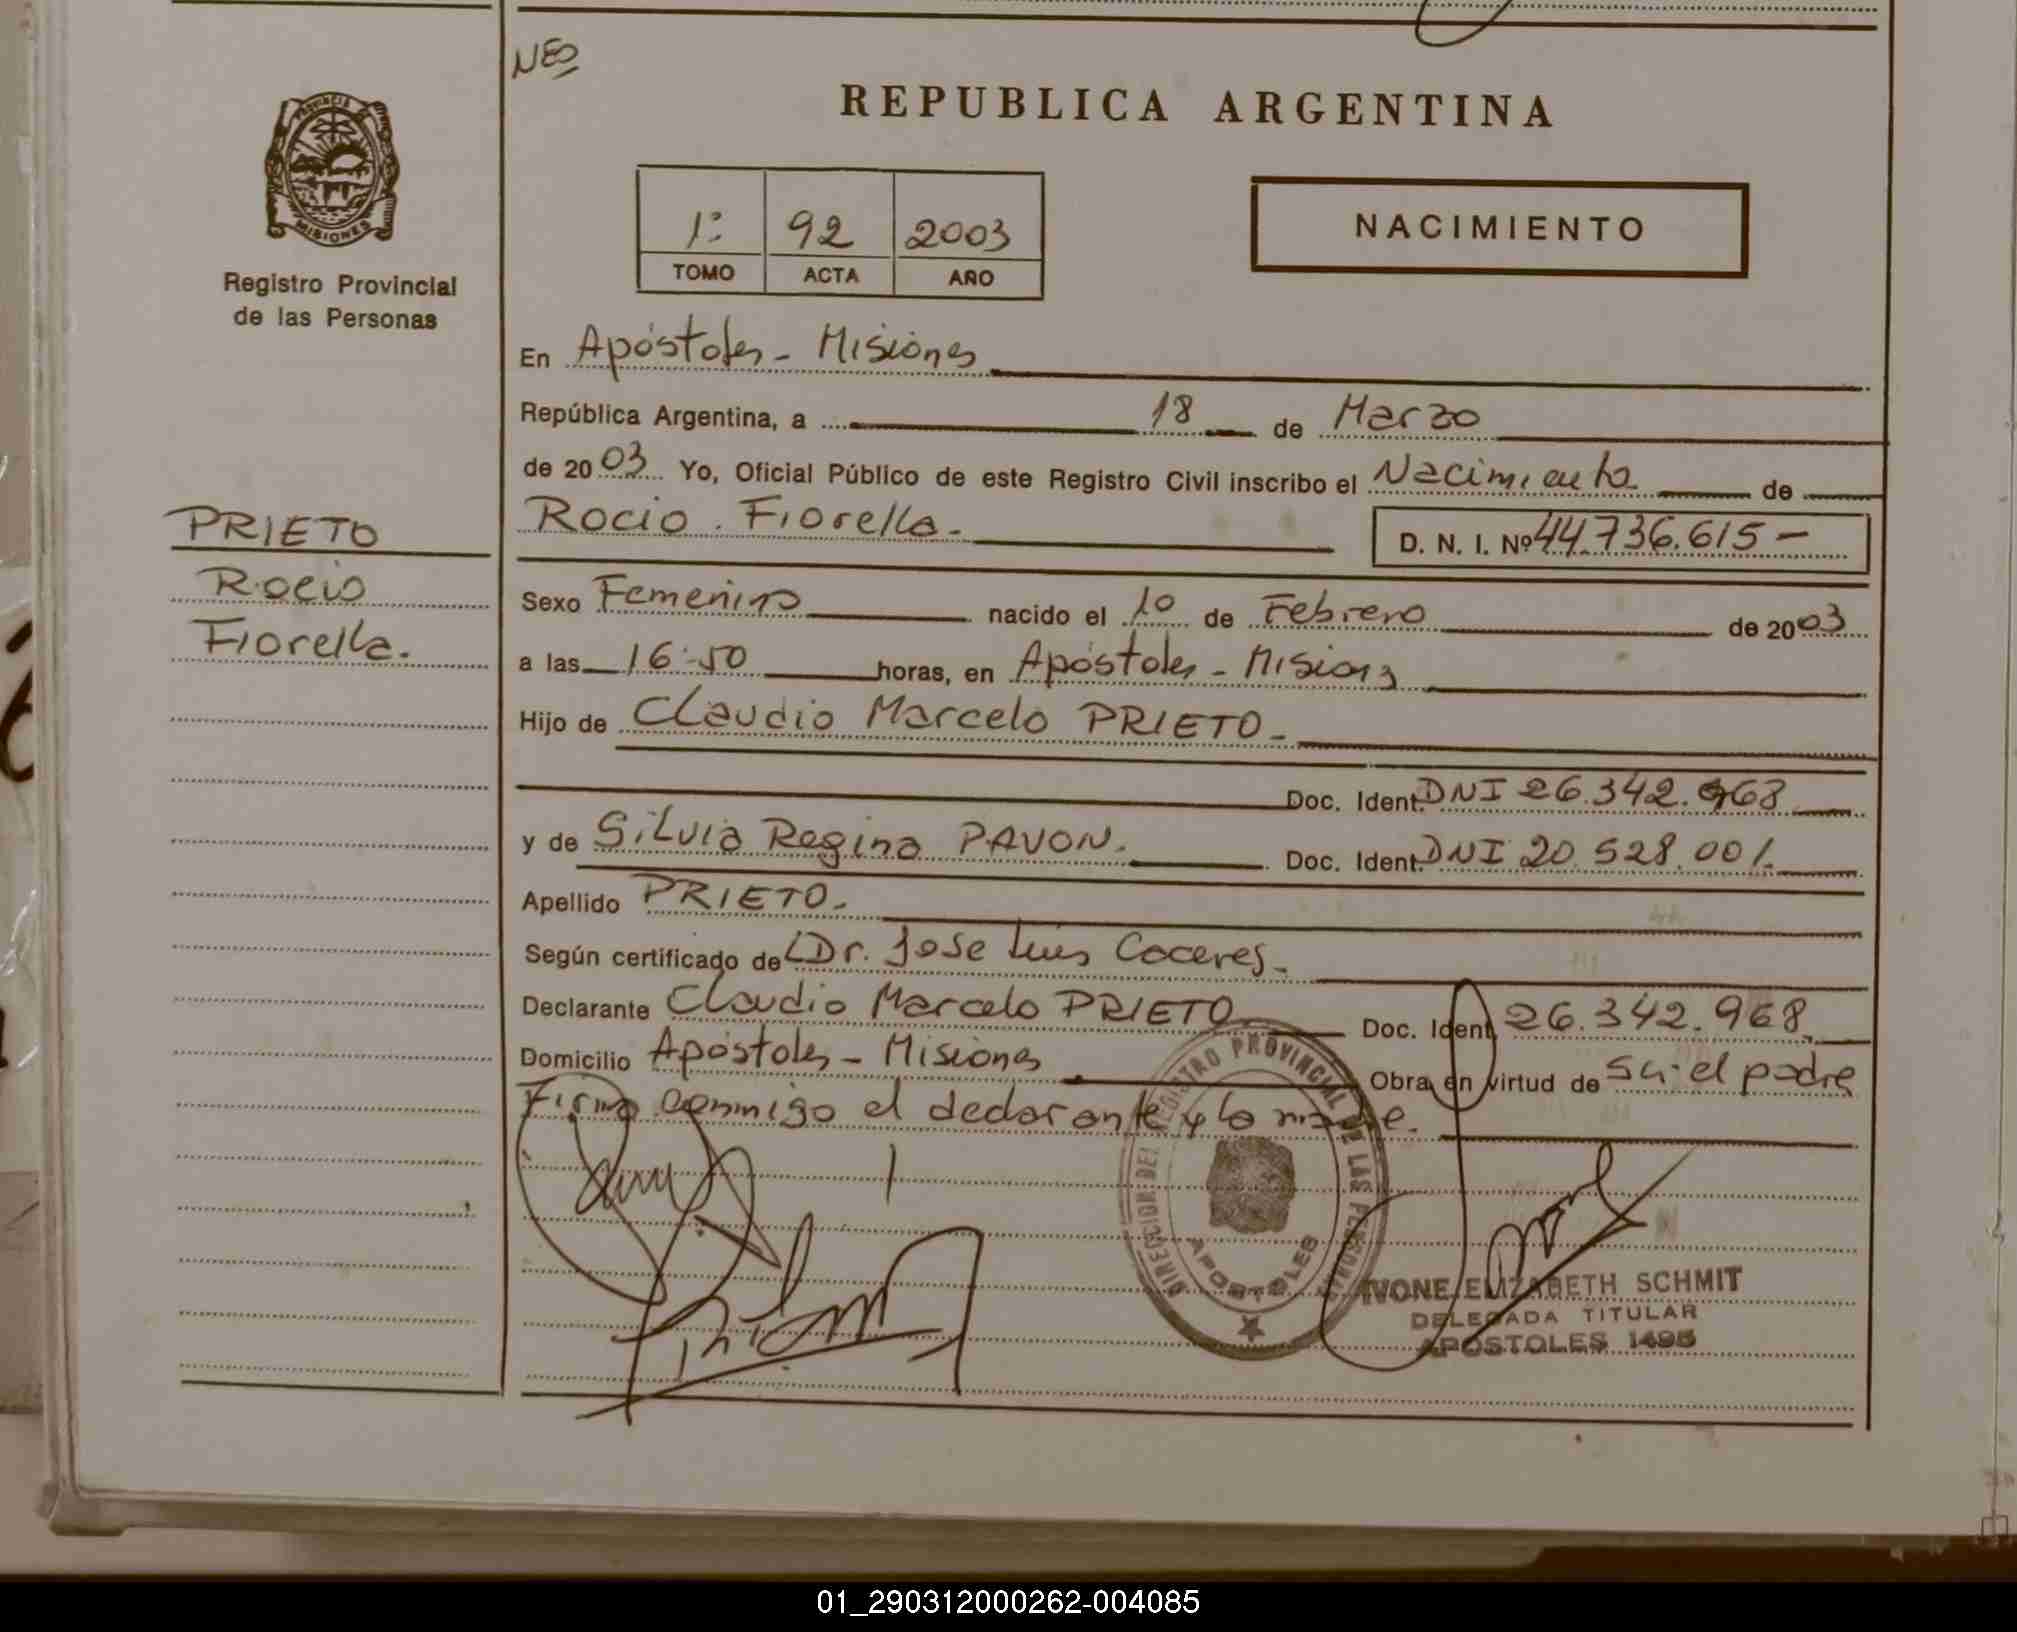 NES
REPUBLICA ARGENTINA
PROVINCIA DE
MISIONES
Registro Provincial
de las Personas
1º 92 2003
TOMO ACTA AÑO
NACIMIENTO
En Apóstoles - Misiones
República Argentina, a 18 de Marzo
de 2003 Yo, Oficial Público de este Registro Civil inscribo el Nacimiento de
Rocio Fiorella.-
D. N. I. Nº 44.736.615 -
PRIETO
Rocio
Fiorella.
Sexo Femenino nacido el 10 de Febrero de 2003
a las 16:50 horas, en Apóstoles - Misiones
Hijo de Claudio Marcelo PRIETO -
Doc. Ident. DNI 26.342.968
y de Silvia Regina PAVON. Doc. Ident. DNI 20.528.001.
Apellido PRIETO.-
Según certificado de Dr. Jose Luis Coceres.-
Declarante Claudio Marcelo PRIETO Doc. Ident. 26.342.968.
Domicilio Apóstoles - Misiones Obra en virtud de Sér el padre
Firma conmigo el declarante y la madre.
DIRECCION DEL REGISTRO PROVINCIAL DE LAS PERSONAS
APOSTOLES
IVONE ELIZABETH SCHMIT
DELEGADA TITULAR
APOSTOLES 1495
01_290312000262-004085